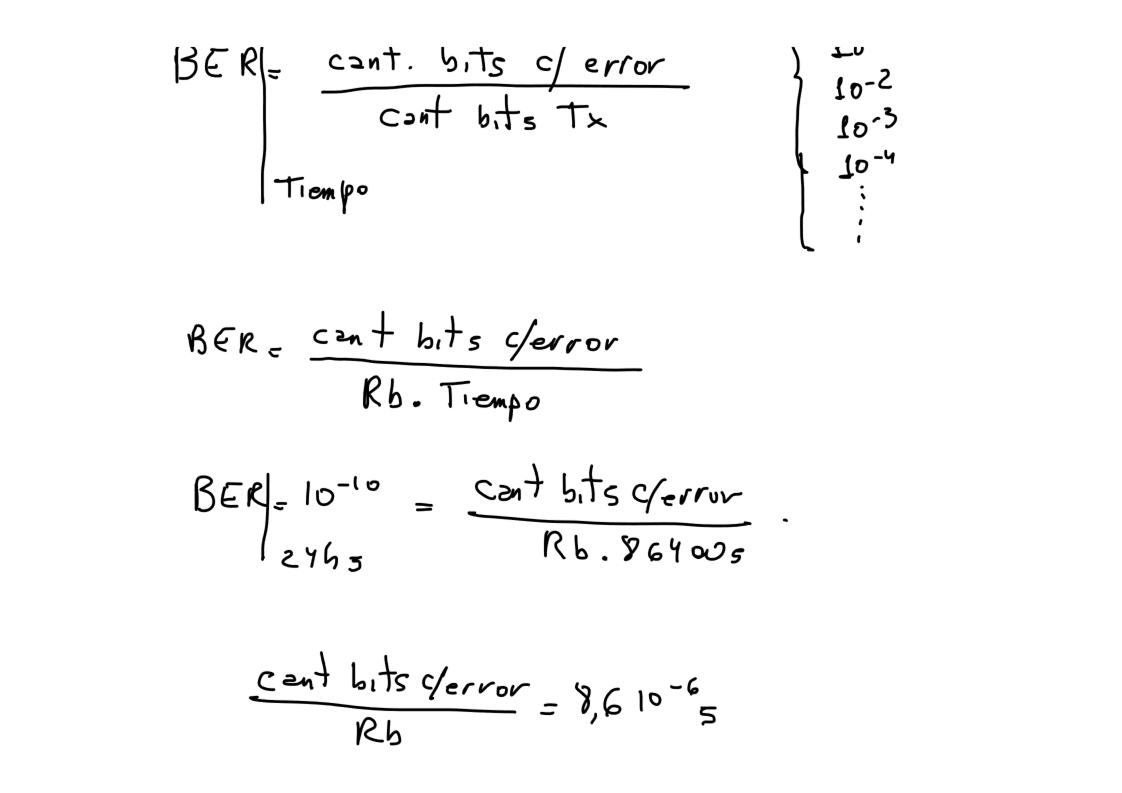 BER|= cant. bits c/ error
cant bits Tx
Tiempo
10-2
10-3
10-4
BER= cant bits c/error
Rb. Tiempo
BER|= 10-10 = cant bits c/error
24hs
Rb. 86400s
cant bits c/error = 8,6 10-6 s
Rb